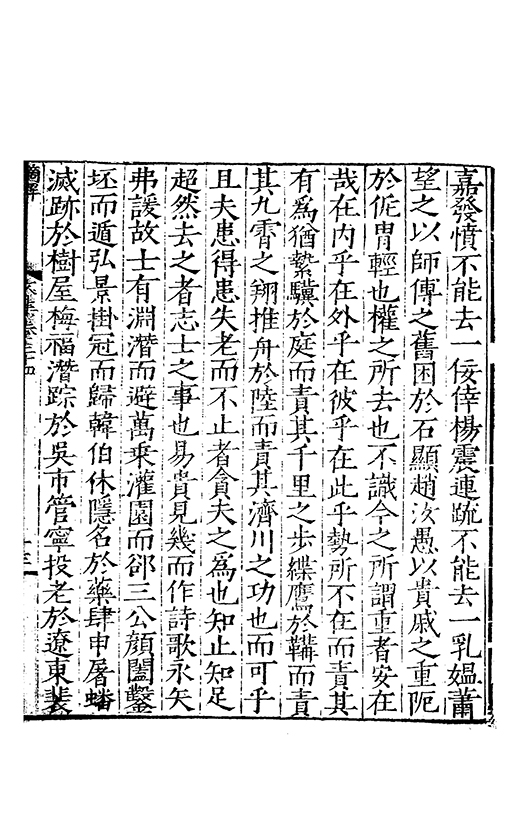 嘉發憤不能去一佞倖楊震連䟽不能去一乳媪蕭
望之以師傅之舊困於石顯趙汝愚以貴戚之重阨
於侂胄輕也權之所去也不識今之所謂重者安在
哉在内乎在外乎在彼乎在此乎勢所不在而責其
有爲猶縶驥於庭而責其千里之歩緤鷹於鞲而責
其九霄之翔推舟於陸而責其濟川之功也而可乎
且夫患得患失老而不止者貪夫之爲也知止知足
超然去之者志士之事也易貴見幾而作詩歌永矢
弗諼故士有淵潛而避萬乗灌園而郤三公顔闔鑿
坯而遁弘景掛冠而歸韓伯休隱名於藥肆申屠蟠
滅跡於樹屋梅福潛踪於吳市管寧投老於遼東裴